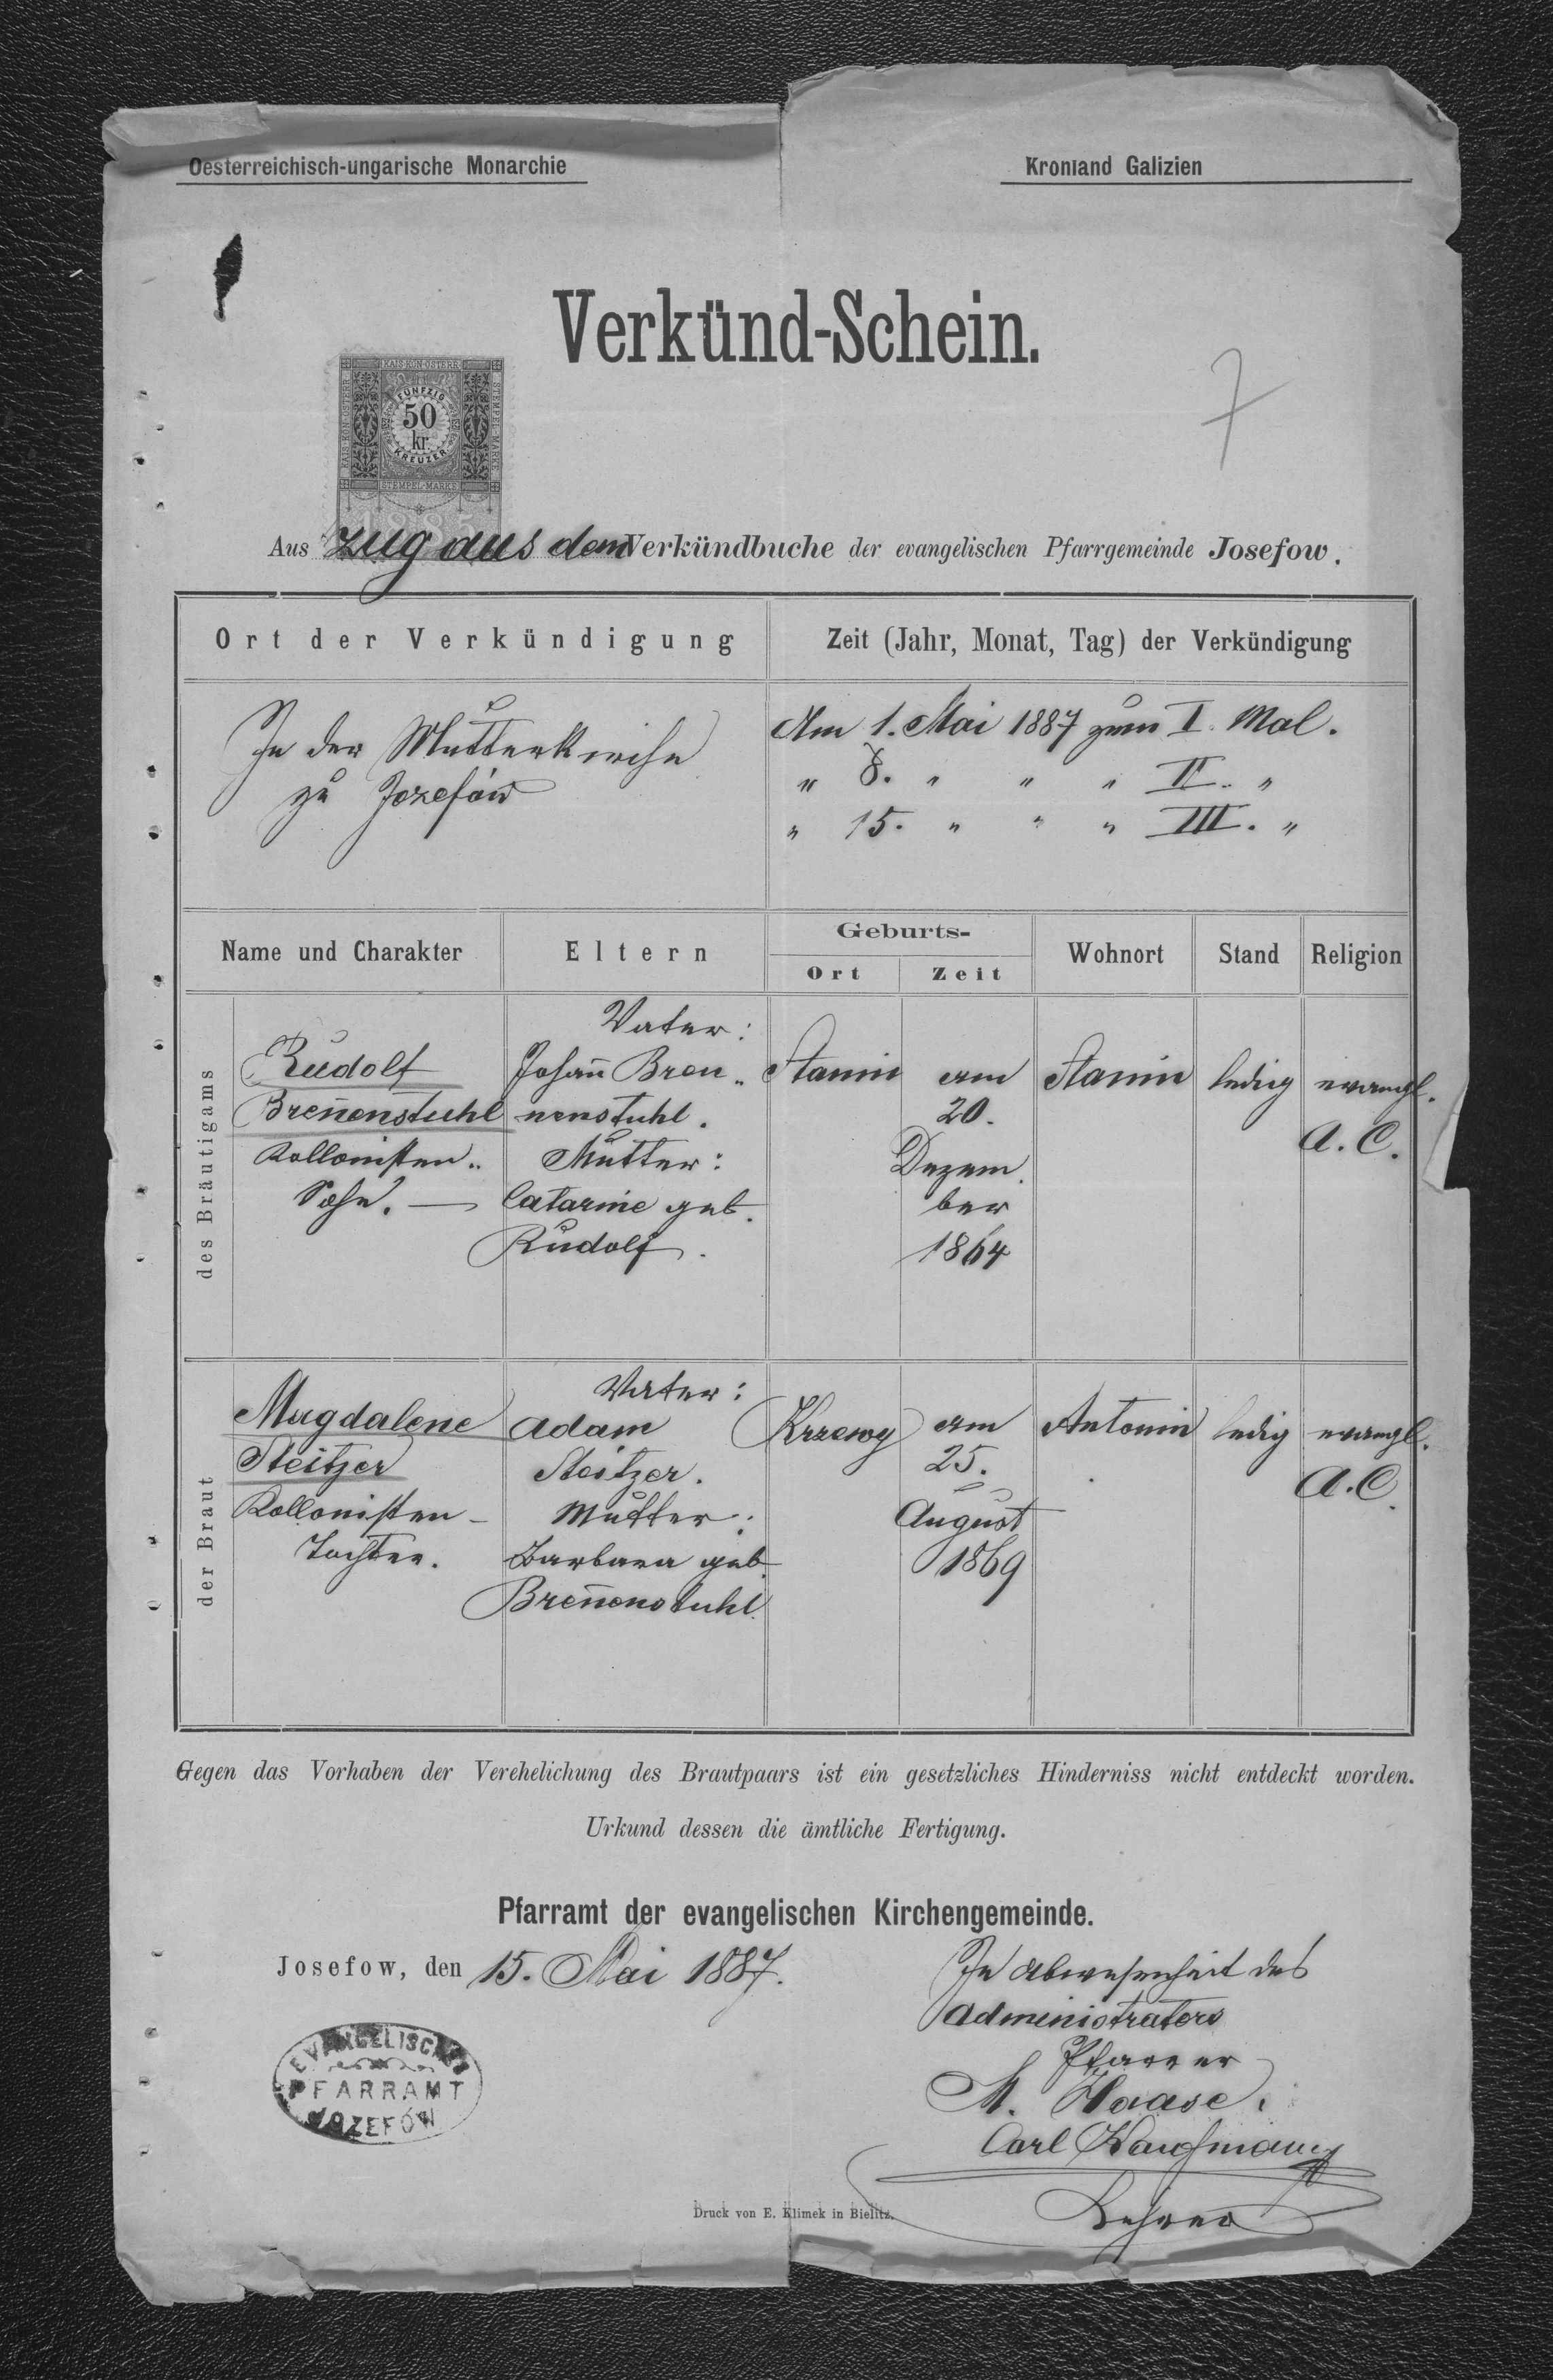 Oesterreichisch-ungarische Monarchie
Kronland Galizien
Verkünd-Schein.
7
KAIS·KÖN·ÖSTERR
FÜNFZIG
50
kr.
KREUZER
STEMPEL-MARKE
1885
Auszug aus dem Verkündbuche der evangelischen Pfarrgemeinde Josefow.
Ort der Verkündigung
Zeit (Jahr, Monat, Tag) der Verkündigung
In der Mutterkirche
zu Jozefów
Am 1. Mai 1887 zum I. Mal.
" 8. " " " II. "
" 15. " " " III. "
Name und Charakter
Eltern
Geburts-
Ort
Zeit
Wohnort
Stand
Religion
des Bräutigams
Rudolf
Breñenstuhl
Kollonisten-
Sohn. —
Vater:
Johañ Bren-
nenstuhl.
Mutter:
Catarine geb.
Rudolf.
Stanin
am
20.
Dezem-
ber
1864
Stanin
ledig
evangl.
A. C.
der Braut
Magdalene
Steitzer
Kollonisten-
Tochter.
Vater:
Adam
Steitzer.
Mutter:
Barbara geb.
Breñenstuhl
Krzewy
am
25.
August
1869
Antonin
ledig
evangl.
A. C.
Gegen das Vorhaben der Verehelichung des Brautpaars ist ein gesetzliches Hinderniss nicht entdeckt worden.
Urkund dessen die ämtliche Fertigung.
Pfarramt der evangelischen Kirchengemeinde.
Josefow, den 15. Mai 1887.
In Abwesenheit des
Administrators
Pfarrer
M. Haase:
Carl Kaufmann
Lehrer
EVANGELISCHES
PFARRAMT
JOZEFÓW
Druck von E. Klimek in Bielitz.